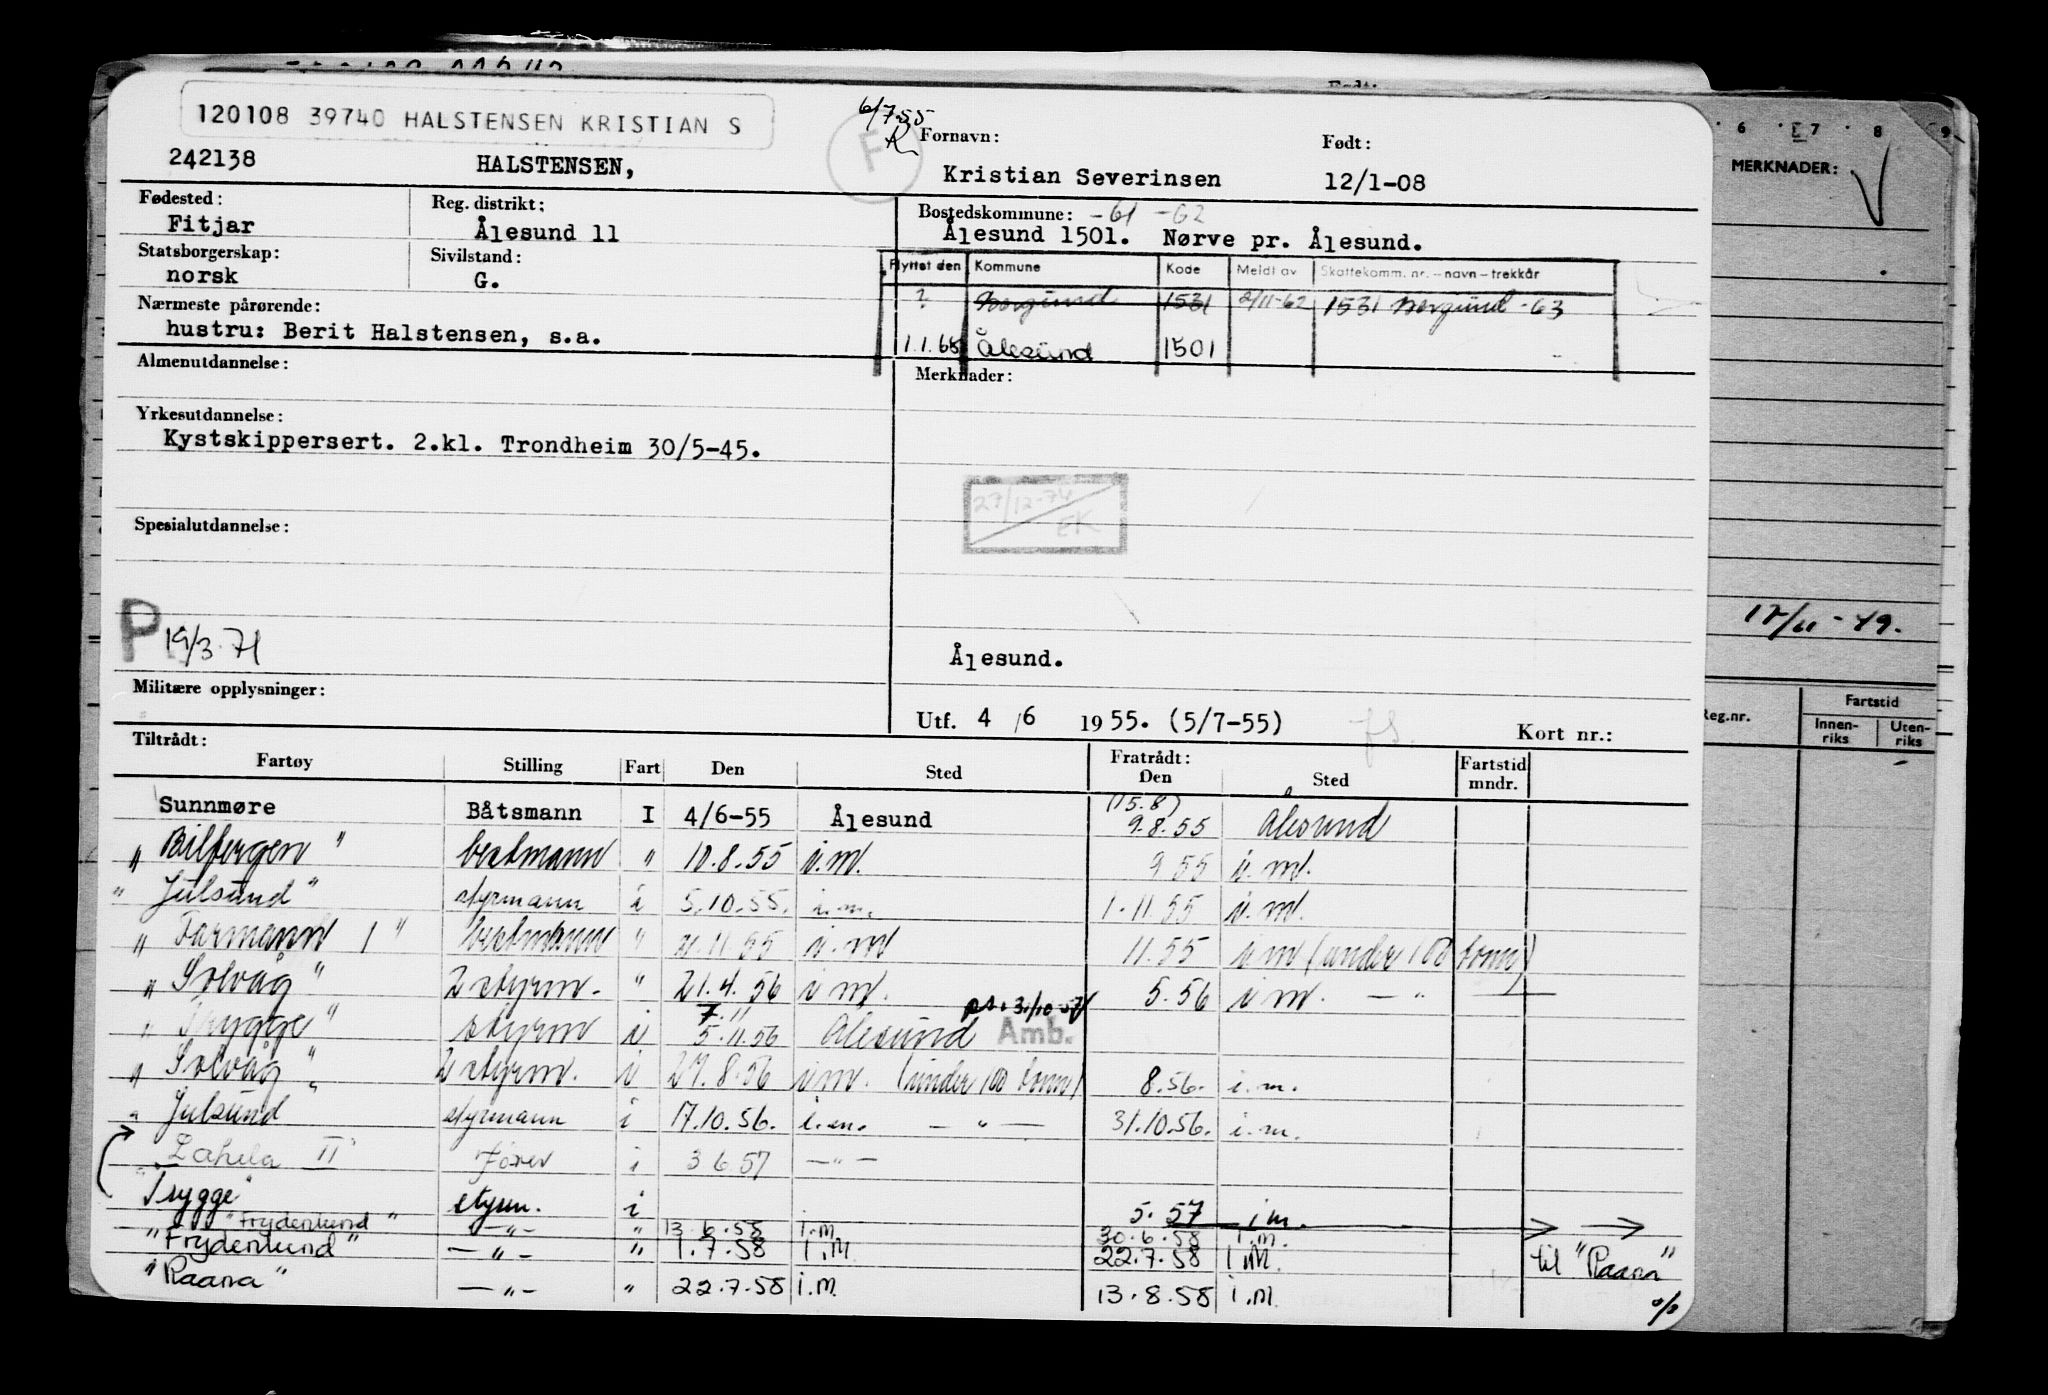 120108 39740 HALSTENSEN KRISTIAN S
6/7 55
F
242138 HALSTENSEN,
Fornavn: Født:
Kristian Severinsen 12/1-08
Fødested: Reg. distrikt:
Fitjar Ålesund 11
Bostedskommune: -61 -62
Ålesund 1501. Nørve pr. Ålesund.
Statsborgerskap: Sivilstand:
norsk G.
Flyttet den Kommune Kode Meldt av Skattekomm. nr. – navn – trekkår
? Borgund 1531 2/11-62 1531 Borgund -63
1.1.68 Ålesund 1501
Nærmeste pårørende:
hustru: Berit Halstensen, s.a.
Almenutdannelse:
Merknader:
Yrkesutdannelse:
Kystskippersert. 2.kl. Trondheim 30/5-45.
27/12-74
EK
Spesialutdannelse:
P 19/3.71
Ålesund.
Militære opplysninger:
Utf. 4/6 1955. (5/7-55) Kort nr.:
Tiltrådt: Fratrådt:
Fartøy Stilling Fart Den Sted Den Sted Fartstid mndr.
Sunnmøre Båtsmann I 4/6-55 Ålesund (15.8) 9.8.55 Ålesund
" " bestmann " 10.8.55 i.m. 9 55 i.m.
" Julsund " styrmann i 5.10.55. i.m. 1.11.55 i.m.
" Farmann I " bestmann " 11.55 i.m 11.55 i m (under 100 tonn)
" Solvåg " 2 styrm. " 21.4.56 i m. 5.56 i m. — " —
7.11
" Trygge " styrm i 5.11.56 Ålesund Amb.
" Solvåg " 2 styrm. i 27.8.56 i m. (under 100 tonn) 8.56. i.m.
" Julsund styrmann i 17.10.56. i.m. — " — 31.10.56. i.m.
II fører i 3 6.57 — " —
"Trygge" styrm. i 5.57 i m.
"Frydenlund" — " — " 13.6.58 i.m. 30.6.58 i.m.
"Frydenlund" — " — " 1.7.58 i.M. 22.7.58 i M. til "Raana"
"Raana" — " — " 22.7.58 i.m. 13.8.58 i.m.
6 7 8 9
MERKNADER:
Reg.nr. Fartstid
Innen-riks Uten-riks